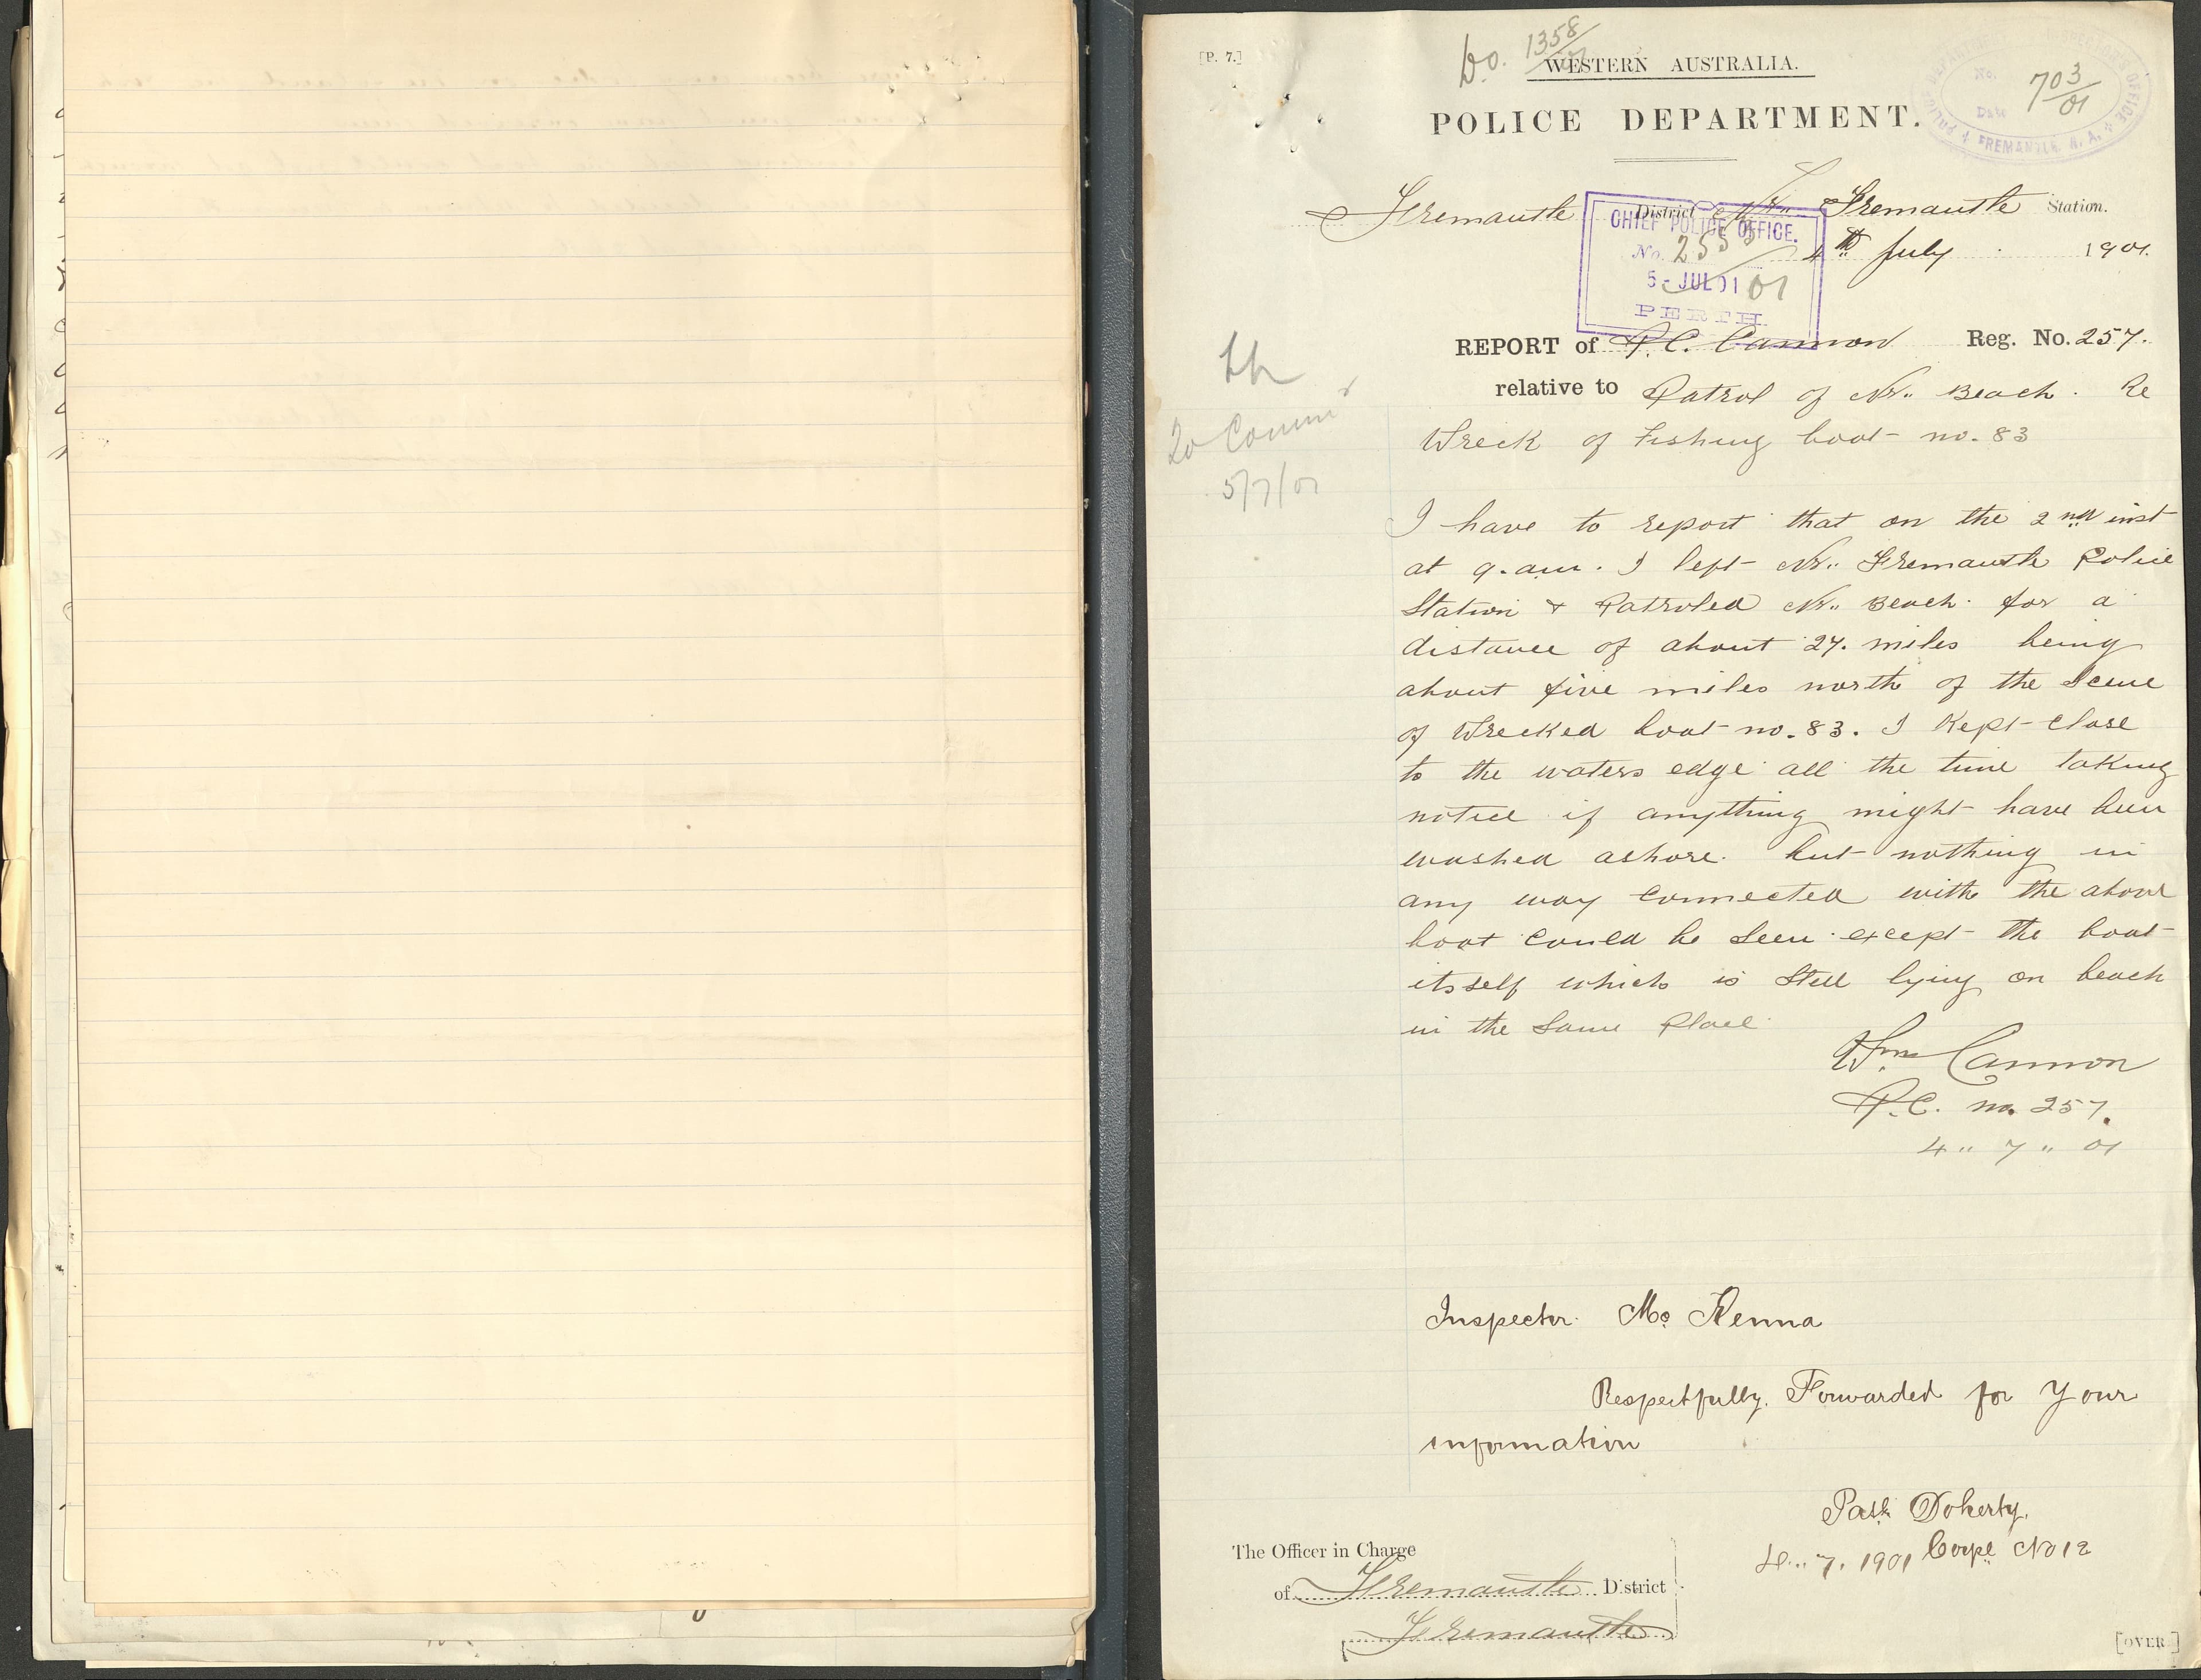 [P. 7.]
Do. 1358/01
WESTERN AUSTRALIA.
POLICE DEPARTMENT.
POLICE DEPARTMENT
No. 703/01
Date
FREMANTLE, W. A.
Fremantle District Nr.. Fremantle Station.
4th July 1901.
CHIEF POLICE OFFICE.
No. 2553/01
5 - JUL 01
PERTH
REPORT of P.C. Cannon Reg. No. 257.
relative to Patrol of Nr.. Beach. Re
Wreck of Fishing boat no. 83
To Commr
5/7/01
I have to report that on the 2nd inst
at 9. am. I left Nr.. Fremantle Police
Station & Patroled Nr.. Beach for a
distance of about 27. miles being
about five miles north of the Scene
of Wrecked boat no. 83. I Kept Close
to the waters edge all the time taking
notice if anything might have been
washed ashore. but nothing in
any way Connected with the above
boat Could be Seen except the boat
itsself which is Still lying on beach
in the Same Place
Wm Cannon
P.C. no. 257.
4 .. 7 .. 01
Inspector Mc Kenna
Respectfully. Forwarded for Your
information
Patk Doherty.
Corpl No 12
4 .. 7. 1901
The Officer in Charge
of Fremantle District
Fremantle
[OVER.]